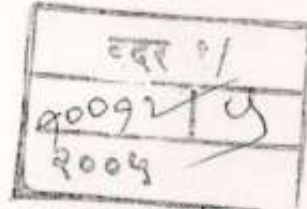 वदर १/
१००१२ / ५
२००५